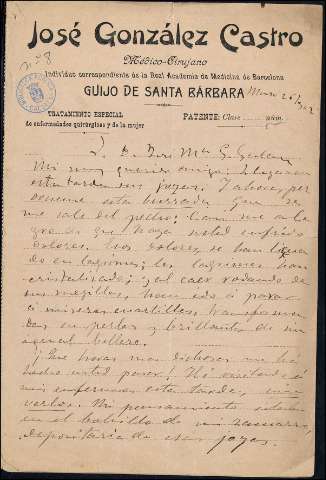 José González Castro
Médico-Cirujano
Individuo correspondiente de la Real Academia de Medicina de Barcelona
GUIJO DE SANTA BÁRBARA
nº 8
TRATAMIENTO ESPECIAL
de enfermedades quirúrgicas y de la mujer
PATENTE: Clase núm.
Mi muy querido amigo: Llegaron
esta tarde sus joyas. Y ahora, per
done me esta burrada que
me sale del pecho: me ale
gro de que haya usted sufrido
dolores. Los dolores se han
do en lagrimas; las lagrimas han
cristalizado; y al caer rodando de
sus megillas, han ido á parar
á mis cuartillas, transforma
das en perlas y brillantes de
belleza.
¡Que horas mas dichosas me ha
hecho usted pasar! He
mis enfermos esta tarde, sin
verlos. Mi pensamiento estaba
en el bolsillo de mi zamarra,
depositaria de esas joyas.